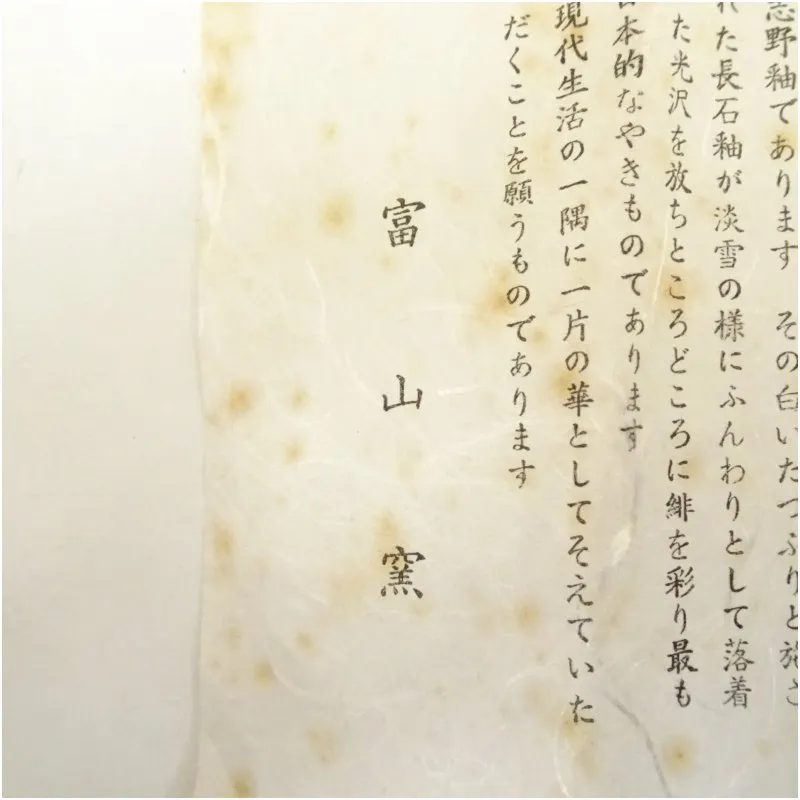 志野釉であります　その白いたっぷりと施さ
れた長石釉が淡雪の様にふんわりとして落着
た光沢を放ちところどころに緋を彩り最も
日本的なやきものであります
現代生活の一隅に一片の華としてそえていた
だくことを願うものであります
富山窯